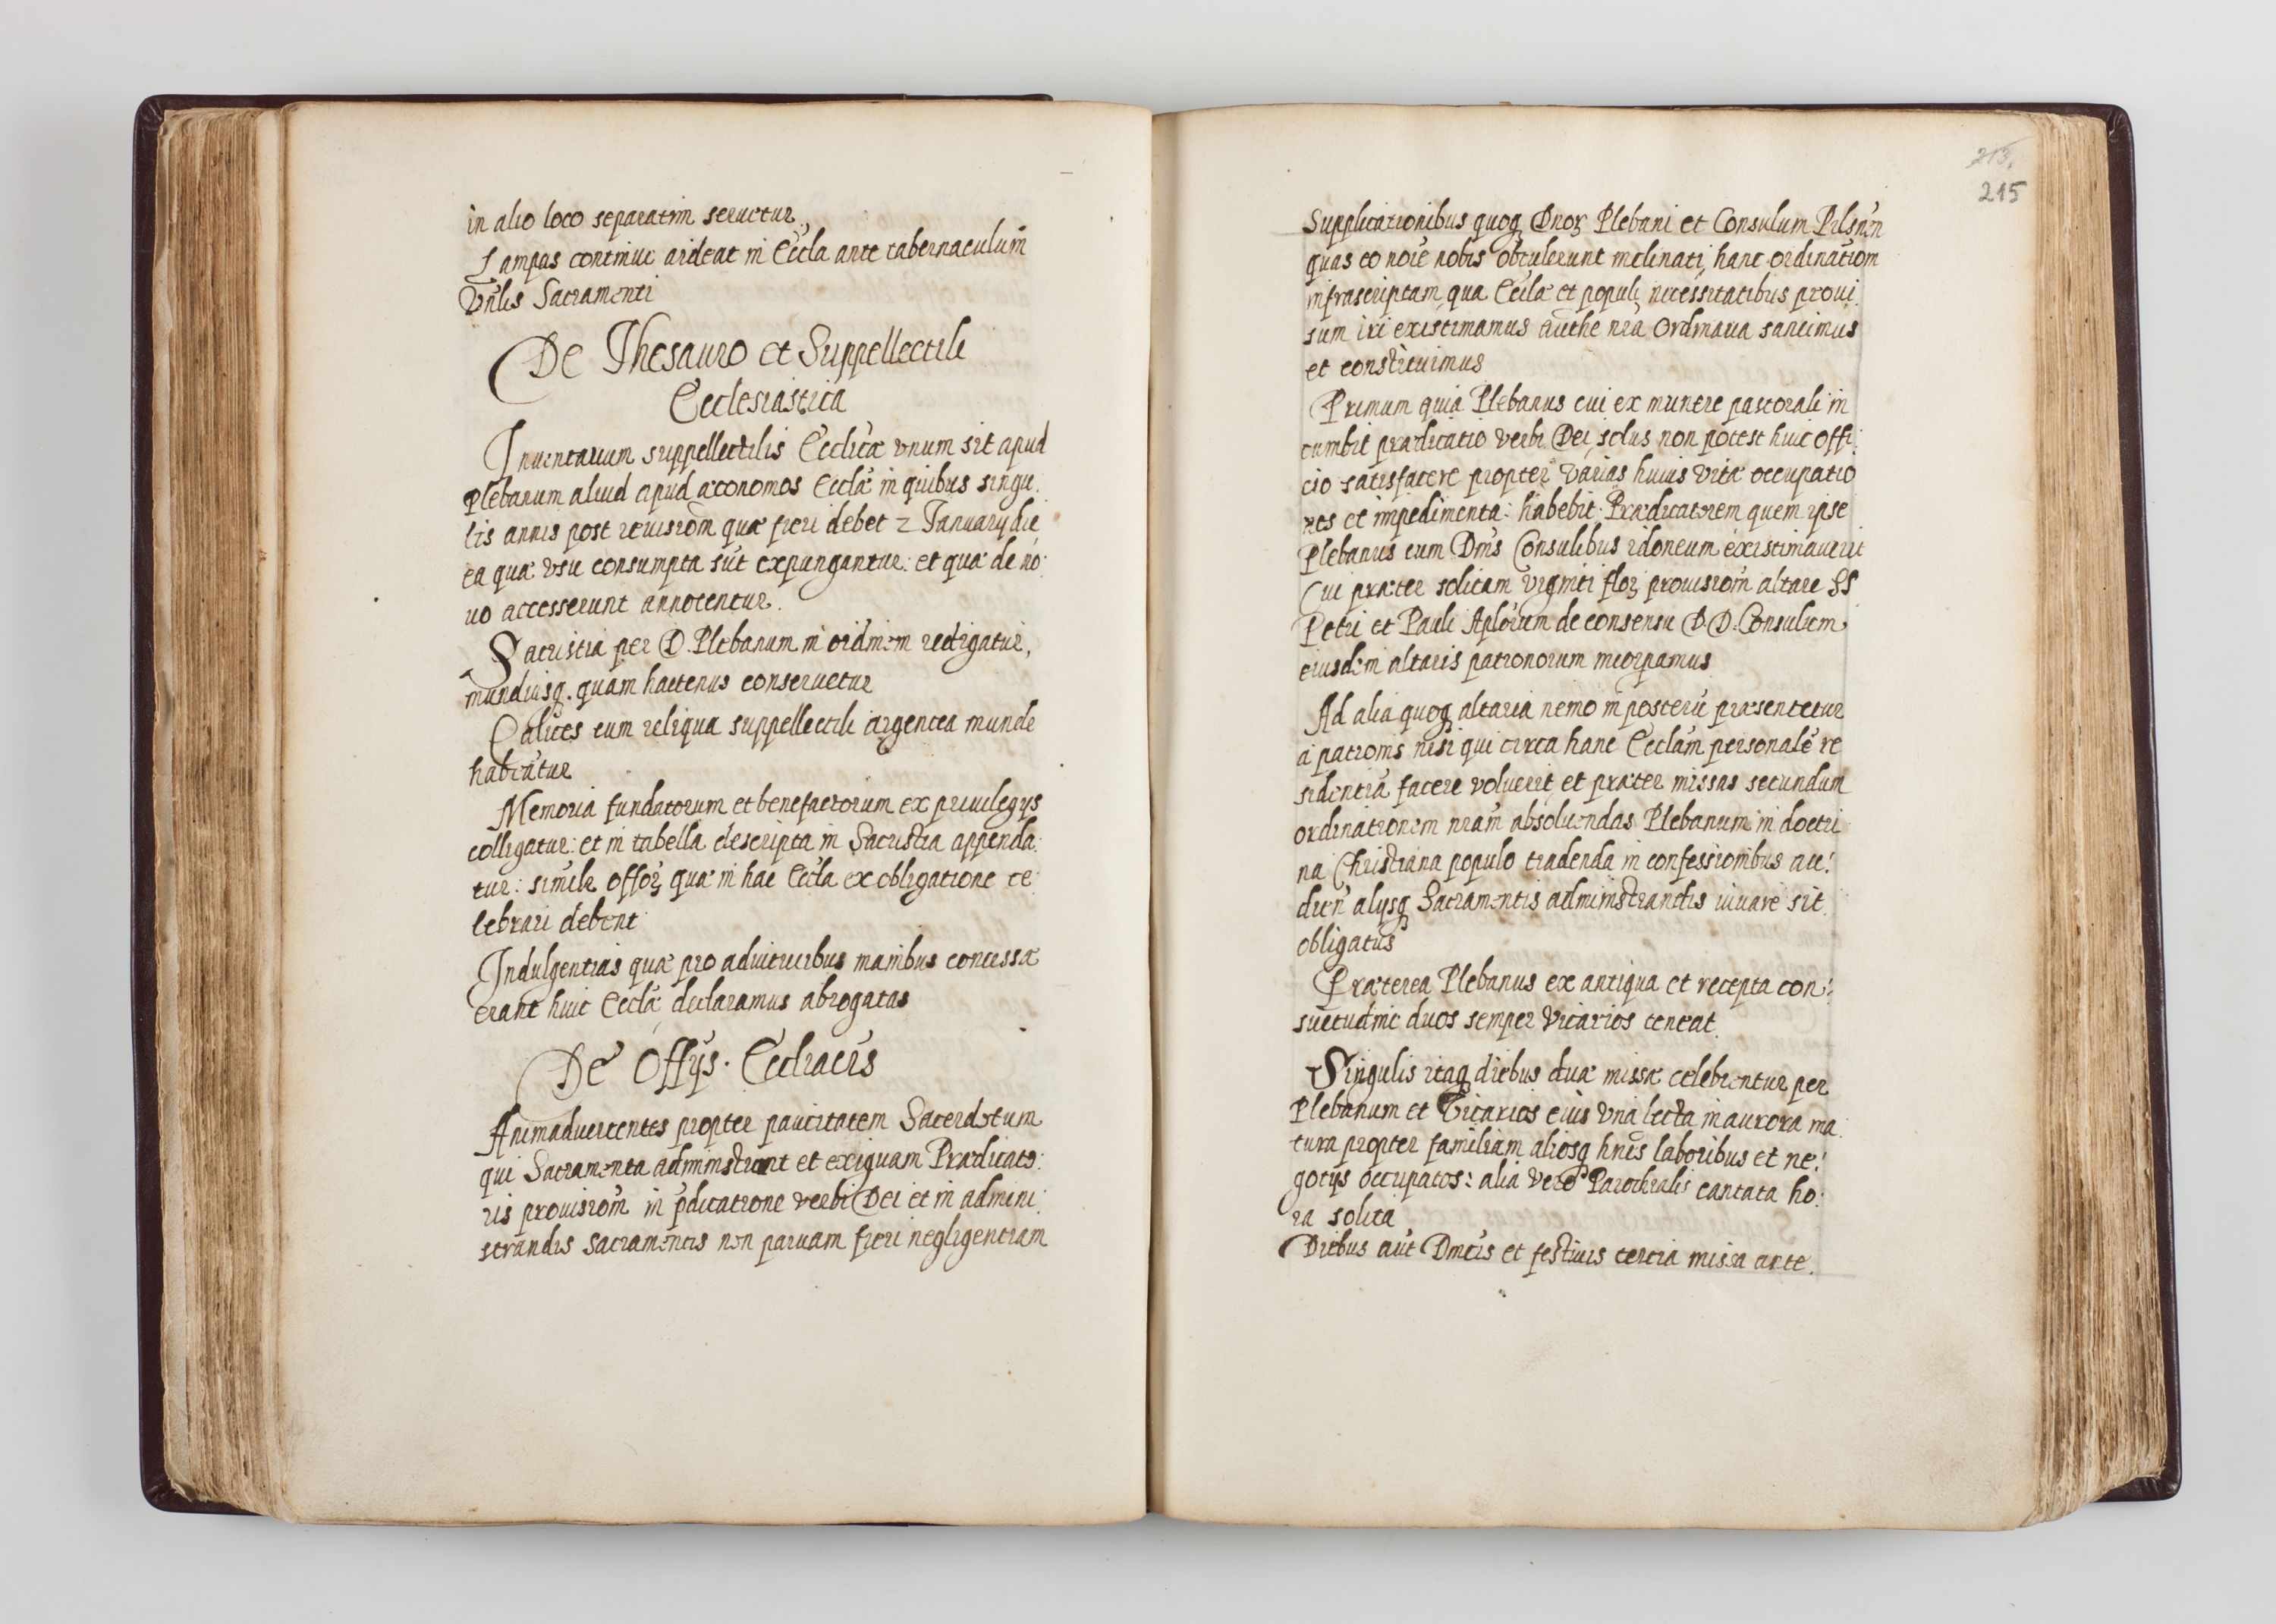 in alio loco separatim seruetur
Lampas continue ardeat in Eccła ante tabernaculum
Vn̄lis Sacramenti
De Thesauro et Suppellectile
Ecclesiastica
Inuentarium suppellectilis Ecclicæ vnum sit apud
Plebanum aliud apud æconomos Ecclæ in quibus singu:
lis annis post reuisiom̄ quæ fieri debet 2 January die
ea quæ vsu consumpta sūt expungantur: et quæ de no:
uo accesserunt annotentur.
Sacristia per D. Plebanum in ordinem redigatur,
mundiusq. quam hactenus conseruetur
Calices cum reliqua suppellectili argentea munde
habeātur
Memoria fundatorum et benefactorum ex priuilegys
colligatur: et in tabella descripta in Sacristia appenda:
tur: simile offoꝝ quæ in hac Eccla ex obligatione ce:
lebrari debent
Indulgentias quæ pro adiutricibus manibus concessæ
erant huic Ecclæ declaramus abrogatas
De Offÿs. Eccliacis
Animaduertentes propter paucitatem Sacerdotum
qui Sacramenta administrant et exiguam Prædicato:
ris prouisiom̄ in p̄dicatione verbi Dei et in admini:
strandis sacramentis non paruam fieri negligentiam
213.
215
Supplicationibus quoq Dnoꝝ Plebani et Consulum Pilsn̄en
quas eo noīe nobis obtulerunt inclinati, hanc ordinatiom̄
infrascriptam, qua Ecclæ et populi necessitatibus proui:
sum iri existimamus authe nrā Ordinaria sancimus
et constituimus
Primum quia Plebanus cui ex munere pastorali in
cumbit prædicatio verbi Dei, solus non potest huic offi:
cio satisfacere propter varias huius vitæ occupatio
nes et impedimenta: habebit Prædicatorem quem ipse
Plebanus cum Dn̄is Consulibus idoneum existimauerit
Cui præter solitam viginti floꝝ prouisiom̄ altare SS
Petri et Pauli Aplorum de consensu D.D. Consulum
eiusdem altaris patronorum incorpamus
Ad alia quoq altaria nemo in posterū præsentetur
a patronis nisi qui circa hanc Ecclām personalē re
sidentiā facere voluerit et præter missas secundum
ordinationem nrām absoluendas Plebanum in doctri
na Christiana populo tradenda in confessionibus au:
dien̄ alysq Sacramentis administrandis iuuare sit
obligatus
Præterea Plebanus ex antiqua et recepta con:
suetudine duos semper Vicarios teneat
Singulis itaq diebus duæ missæ celebrentur per
Plebanum et Vicarios eius vna lecta in aurora ma:
tura propter familiam aliosq hn̄es laboribus et ne:
gotÿs occupatos: alia vero Parochialis cantata ho:
ra solita
Diebus aūt Dn̄icis et festiuis tertia missa ante